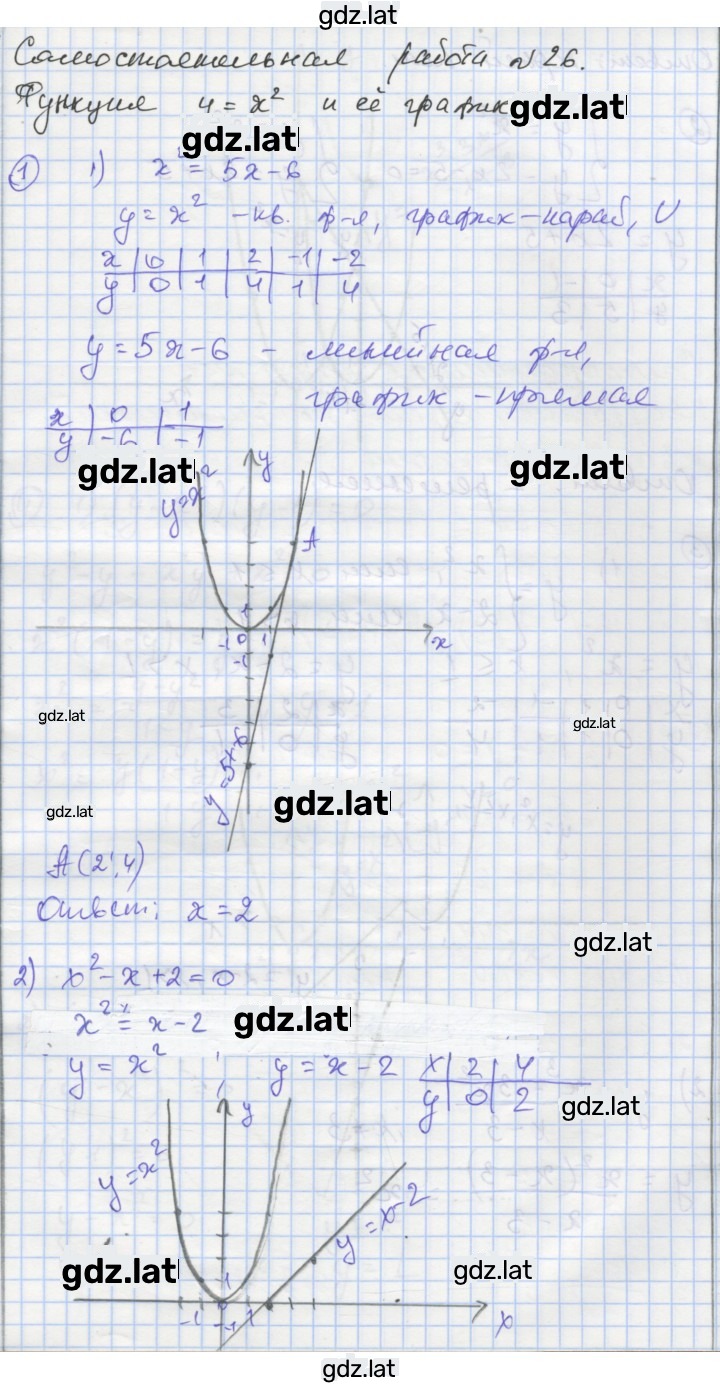 gdz.lat
Самостоятельная работа №26.
Функция y = x² и её график
gdz.lat
gdz.lat
① 1) x² = 5x-6
y = x² - кв. ф-я, график - параб, U
x | 0 | 1 | 2 | -1 | -2
y | 0 | 1 | 4 | 1 | 4
y = 5x-6 - линейная ф-я,
график - прямая
x | 0 | 1
y | -6 | -1
gdz.lat
gdz.lat
y
y=x²
A
1
-1 0 1
-1
x
gdz.lat
gdz.lat
y=5x-6
gdz.lat
gdz.lat
A(2;4)
Ответ: x = 2
gdz.lat
2) x² - x + 2 = 0
x² = x - 2
gdz.lat
y = x²
y = x - 2
x | 2 | 4
y | 0 | 2
gdz.lat
y
y=x²
y=x-2
gdz.lat
gdz.lat
1
-1 0 1
-1
x
gdz.lat